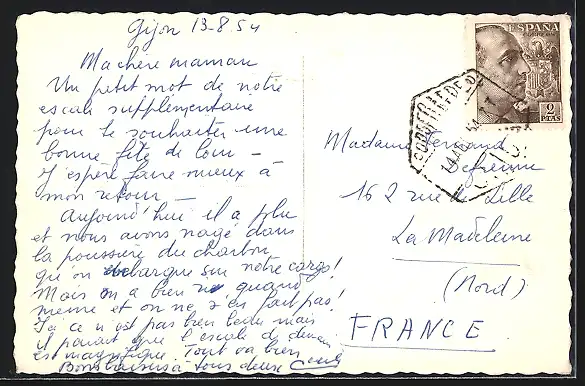 Gijon 13-8.54
Ma chère maman
Un petit mot de notre
escale supplémentaire
pour te souhaiter une
bonne fête de loin -
J'espère faire mieux à
mon retour -
Aujourd'hui il a plu
et nous avons nagé dans
la poussière du charbon
qu'on débarque sur notre cargo!
Mais on a bien ri quand
même et on ne s'en fait pas!
Ici ce n'est pas bien beau mais
il paraît que l'escale de demain
est magnifique. Tout va bien
Bons baisers à tous deux
Madame Fernand
Defrenne
162 rue de Lille
La Madeleine
(Nord)
FRANCE
ESPAÑA
2
PTAS